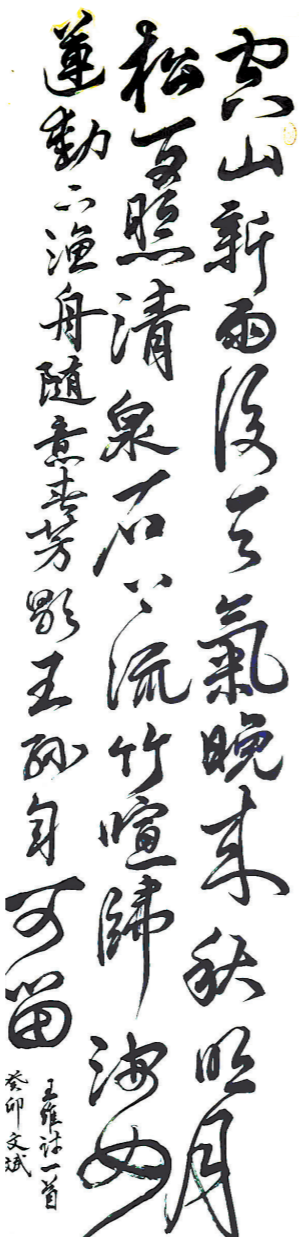 空山新雨後天氣晚来秋明月
松間照清泉石上流竹喧歸浣女
蓮動下漁舟随意春芳歇王孫自可留
王維詩一首
癸卯文斌